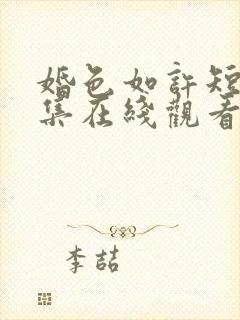 婚色如許短
集在綫觀看
李喆